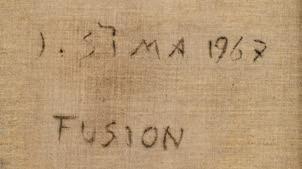 J. ŠÍMA 1967
FUSION